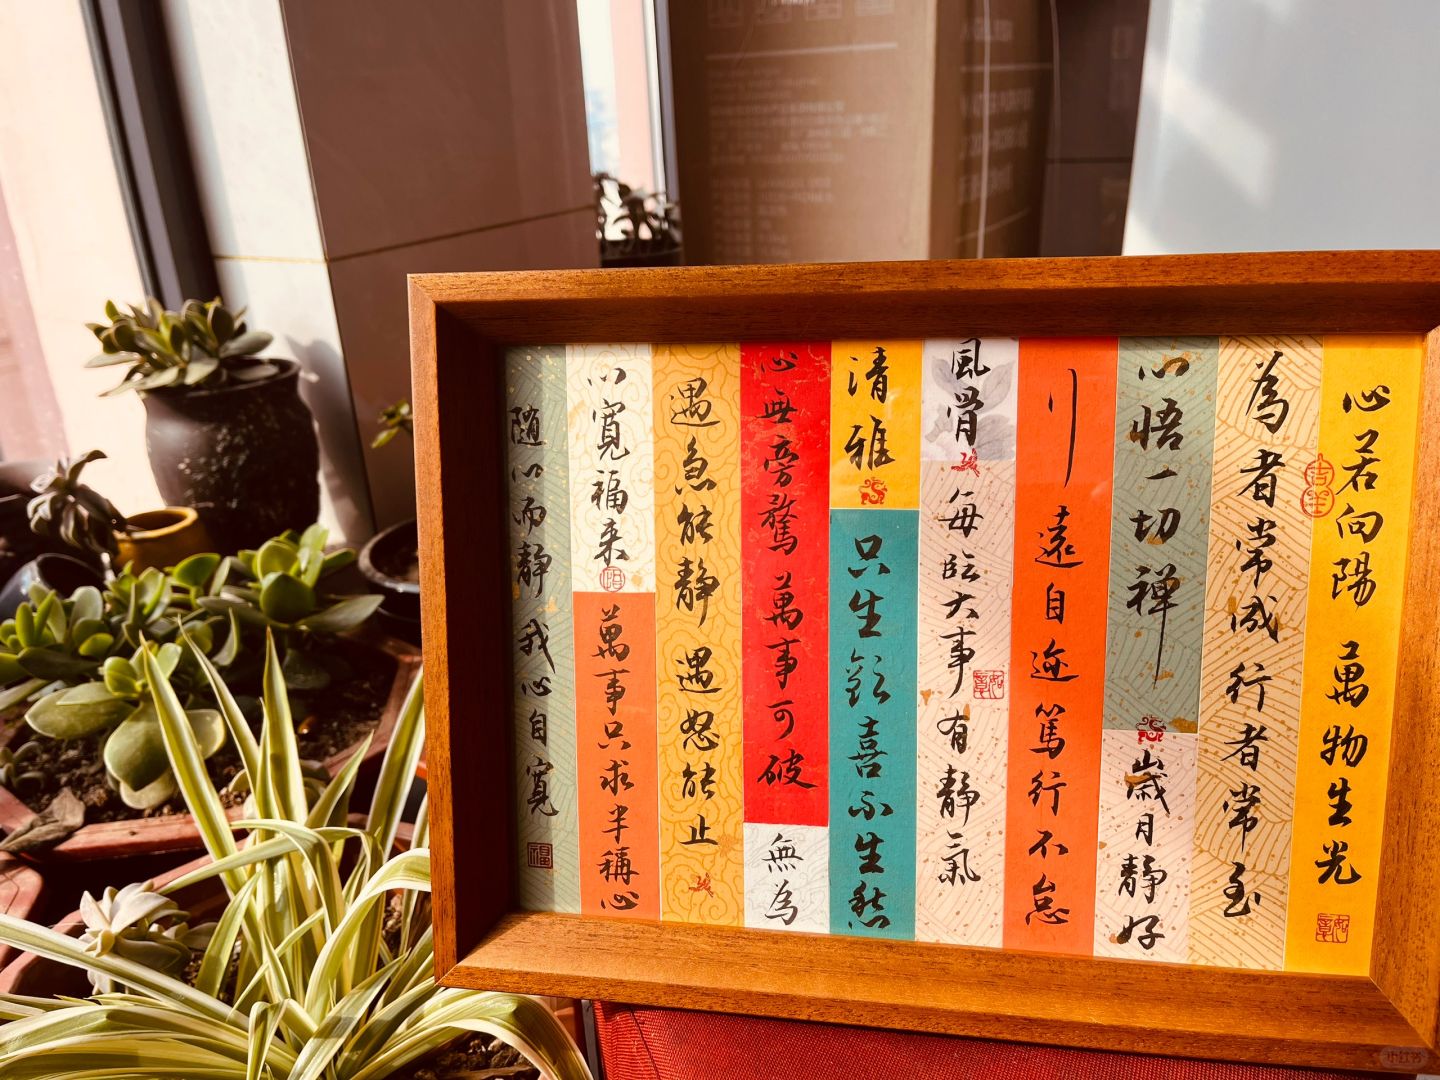 心若向陽 萬物生光
為者常成行者常至
心悟一切禅
歲月静好
行遠自迩篤行不怠
風骨
每臨大事有静氣
清雅
只生歡喜不生愁
心無旁騖萬事可破
無為
遇急能静遇怒能止
心寬福来
萬事只求半稱心
随心而静我心自寬
福
小红书